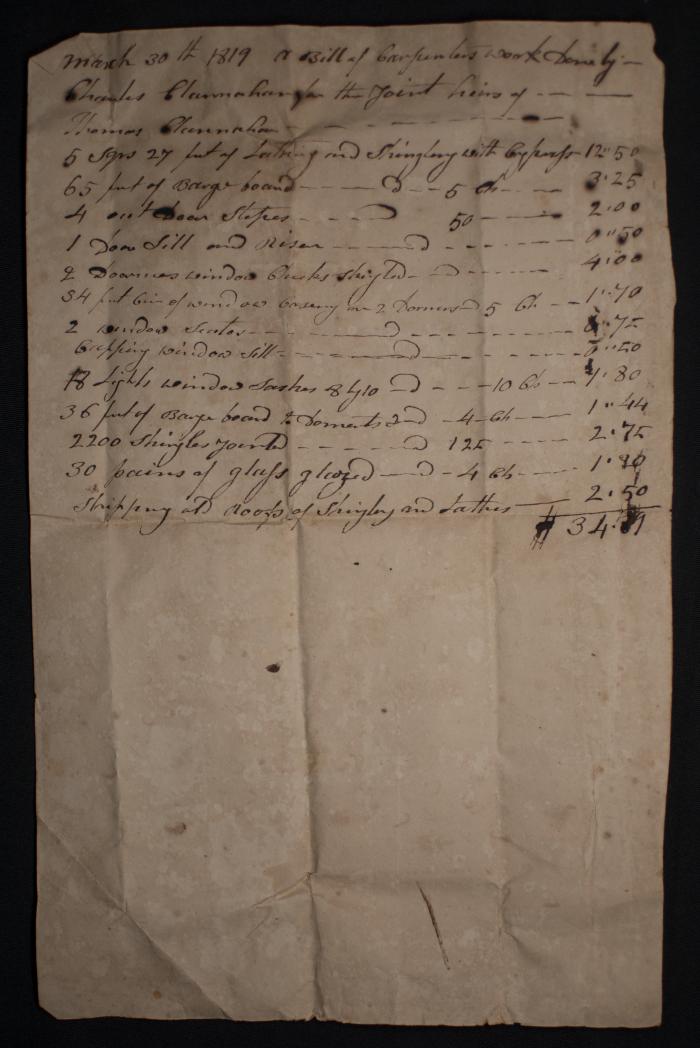 March 30th 1819 a Bill of Carpenters work Done by
Charles Clannahan for the Joint heirs of
Thomas Clannahan
5 Sqrs 27 feet of Lathing and Shingling with Cypress 12"50
65 feet of Barge board D 5 Cts 3"25
4 out Door Stepes D 50 2"00
1 Door Sill and Riser D 0"50
2 window Cheeks Shingled D 4"00
34 feet of window Caseing on 2 Dorments D 5 Cts 1"70
2 window Seates D 0"75
Caping window Sill D 0"50
18 Lights window Sashes 8 by 10 D 10 Cts 1"80
36 feet of Barge board to Dorments D 4 Cts 1"44
2200 Shingles Jointed D 125 2"75
30 pains of glass glazed D 4 Cts 1"20
Stripping old Roofs of Shingles and Lathes 2"50
$ 34"